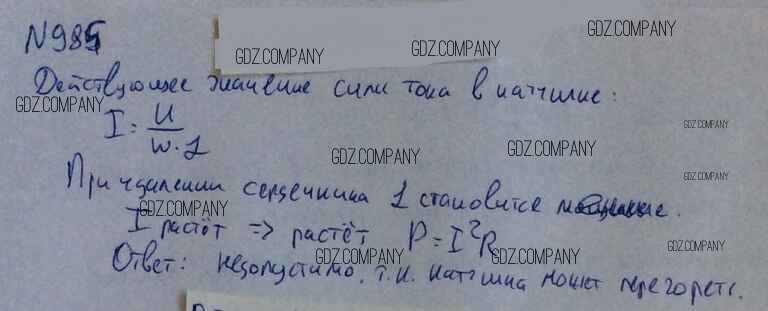 N985
GDZ.COMPANY
GDZ.COMPANY
GDZ.COMPANY
Действующее значение силы тока в катушке:
GDZ.COMPANY
I = U / w·L
GDZ.COMPANY
GDZ.COMPANY
GDZ.COMPANY
При удалении сердечника L становится меньше.
GDZ.COMPANY
GDZ.COMPANY
I растёт => растёт P = I²R
GDZ.COMPANY
GDZ.COMPANY
GDZ.COMPANY
Ответ: недопустимо, т.к. катушка может перегореть.